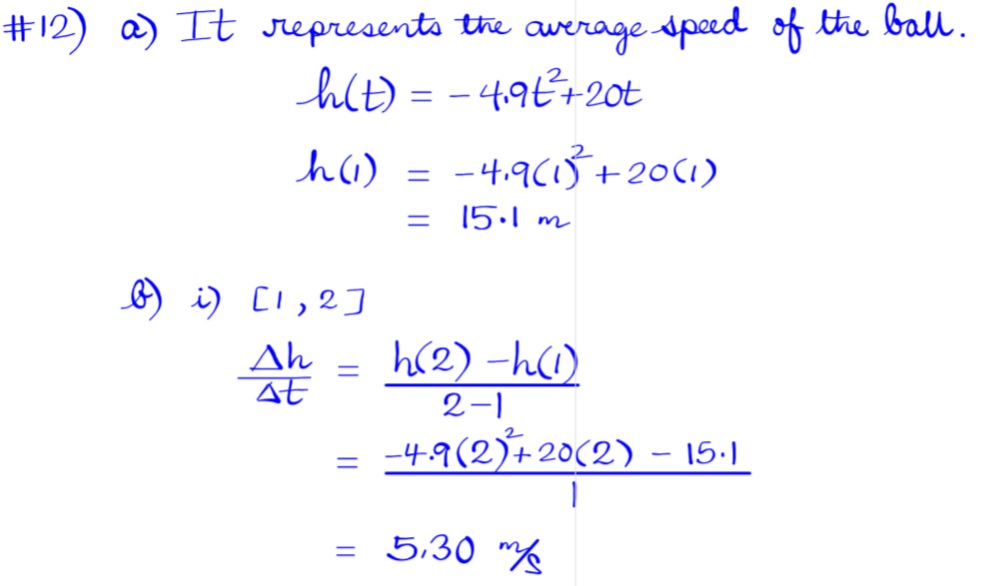 #12) a) It represents the average speed of the ball.
h(t) = -4.9t²+20t
h(1) = -4.9(1)²+20(1)
= 15.1 m
b) i) [1,2]
Δh/Δt = h(2)-h(1)/2-1
= -4.9(2)²+20(2) - 15.1/1
= 5.30 m/s